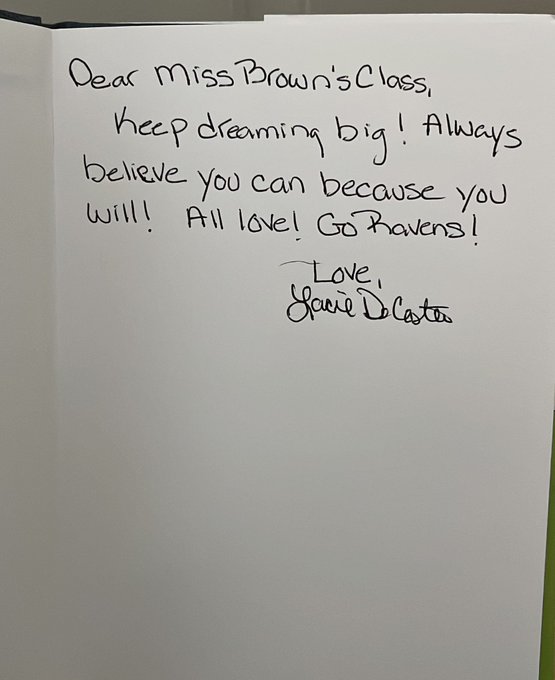 Dear Miss Brown's Class,
Keep dreaming big! Always
believe you can because you
will! All love! Go Ravens!
Love,
Lacie DeCosta